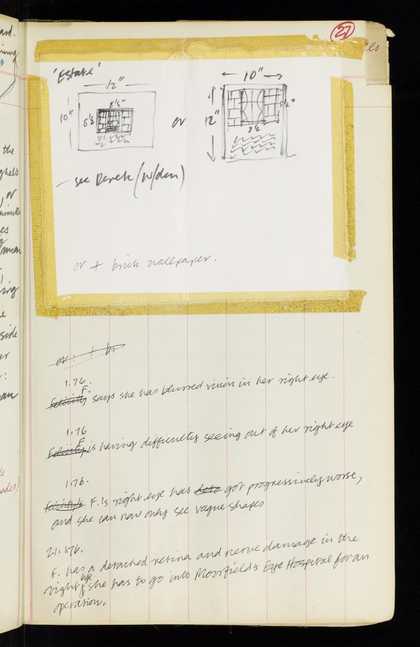 27
'Estate'
12"
10"
10"
12"
or
- see Derek (W/den)
or + brick wallpaper.
or + br
1.76.
F.
Felicity says she has blurred vision in her right eye.
1.76
F
Felicity is having difficulty seeing out of her right eye
1.76.
Felicity's F.'s right eye has got progressively worse,
and she can now only see vague shapes
21.1.76.
F. has a detached retina and nerve damage in the
right eye she has to go into Moorfields Eye Hospital for an
operation.